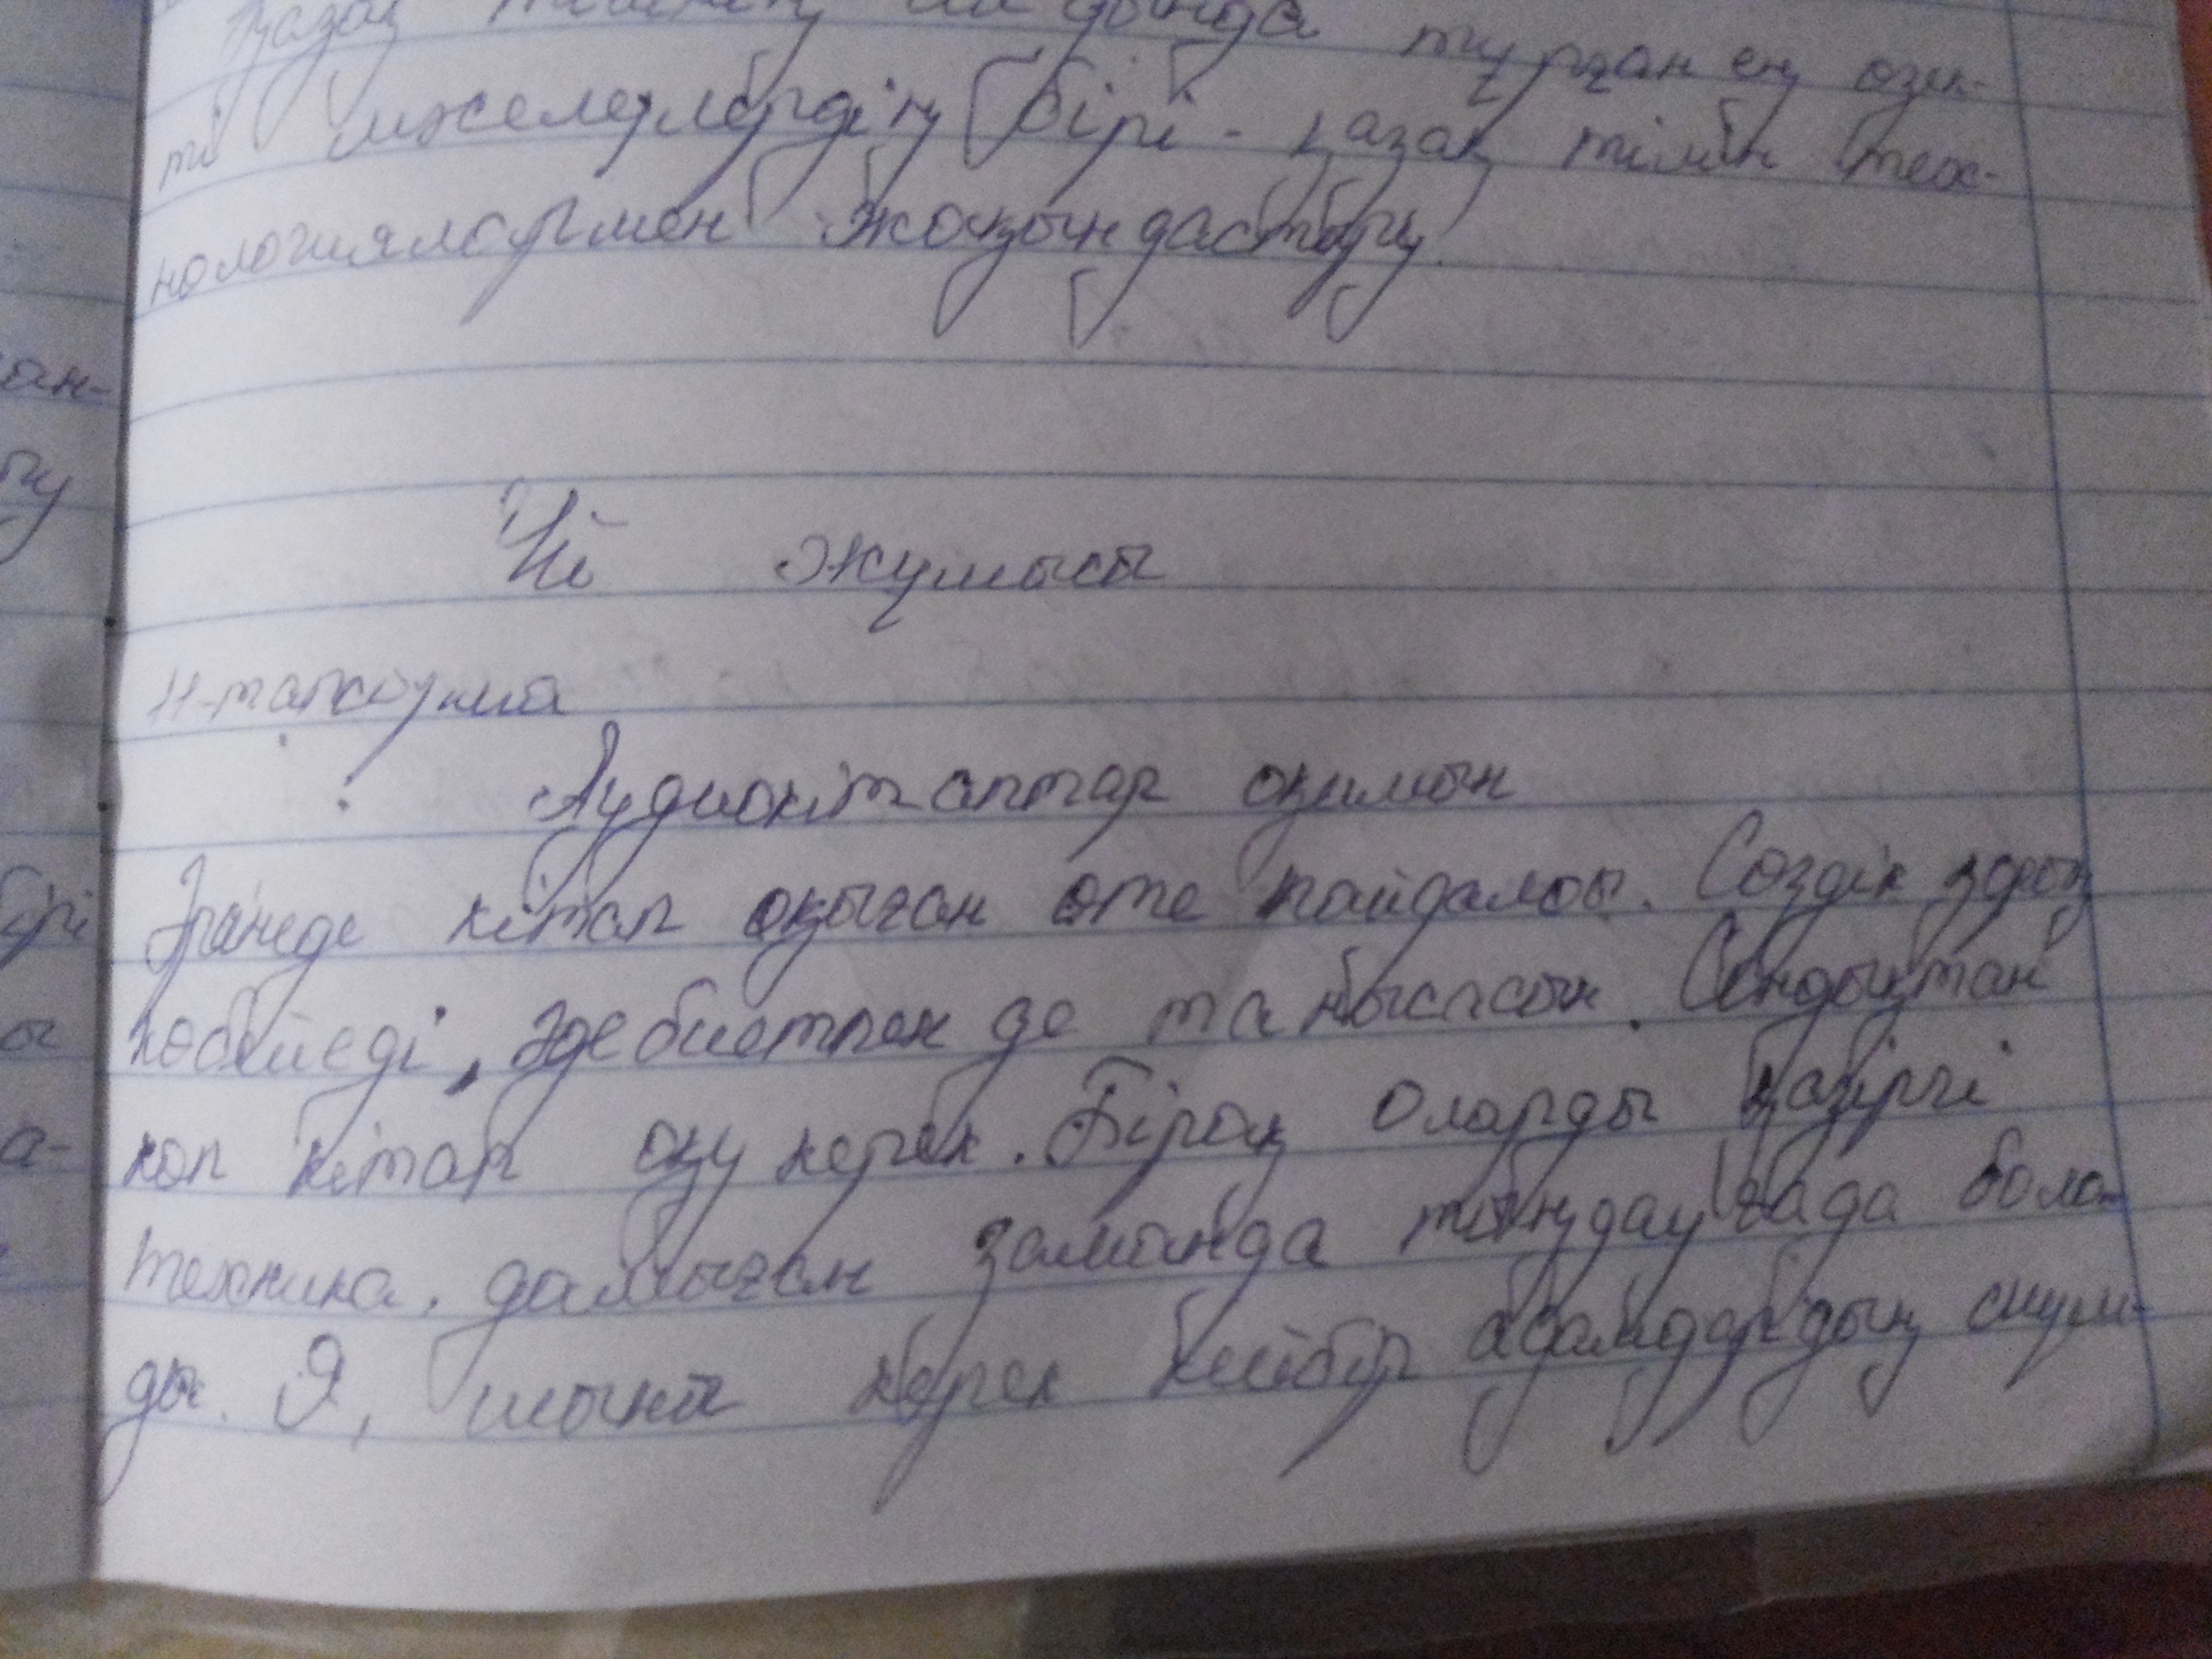 Қазақ тілінің алдында тұрған ең өзек-
ті мәселелердің бірі - қазақ тілін тех-
нологиялармен жақындастыру.
Үй жұмысы
11-тапсырма
Аудиокітаптар оқимын
Әрине кітап оқыған өте пайдалы. Сөздік қорың
көбейеді, әдебиетпен де танысасың. Сондықтан
көп кітап оқу керек. Бірақ оларды қазіргі
техника дамыған заманда тыңдауғада бола-
ды. Я, мүмкін керек кейбір адамдардың
ан-
ру
бірі
ы
а-